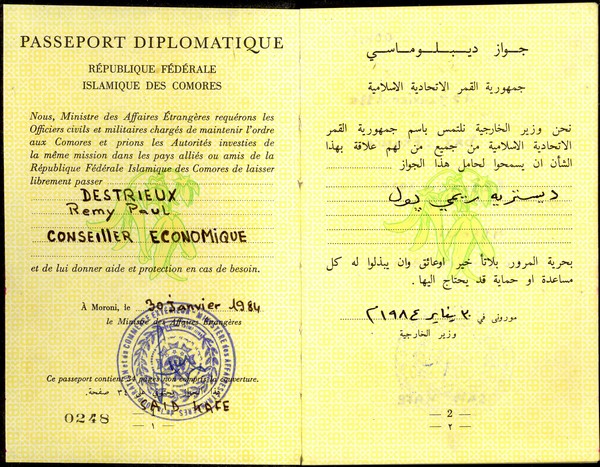 PASSEPORT DIPLOMATIQUE
RÉPUBLIQUE FÉDÉRALE
ISLAMIQUE DES COMORES
Nous, Ministre des Affaires Étrangères requérons les
Officiers civils et militaires chargés de maintenir l'ordre
aux Comores et prions les Autorités investies de
la même mission dans les pays alliés ou amis de la
République Fédérale Islamique des Comores de laisser
librement passer
DESTRIEUX
Remy Paul
CONSEILLER ECONOMIQUE
et de lui donner aide et protection en cas de besoin.
À Moroni, le 30 janvier 1984
le Ministre des Affaires Étrangères
Ce passeport contient 34 pages non compris la couverture.
٣٤ صفحة.
SAID KAFE
0248
— ١ —
جـواز ديـبـلـومـاسـي
جمهورية القمر الاتحادية الاسلامية
نحن وزير الخارجية نلتمس باسم جمهورية القمر
الاتحادية الاسلامية من جميع من لهم علاقة بهذا
الشأن ان يسمحوا لحامل هذا الجواز
ديستريه ريمي پول
بحرية المرور بلاتأ خير اوعائق وان يبذلوا له كل
مساعدة او حماية قد يحتاج اليها .
مورونى في ٣٠ يناير ١٩٨٤ م
وزير الخارجية
— 2 —
— ٢ —